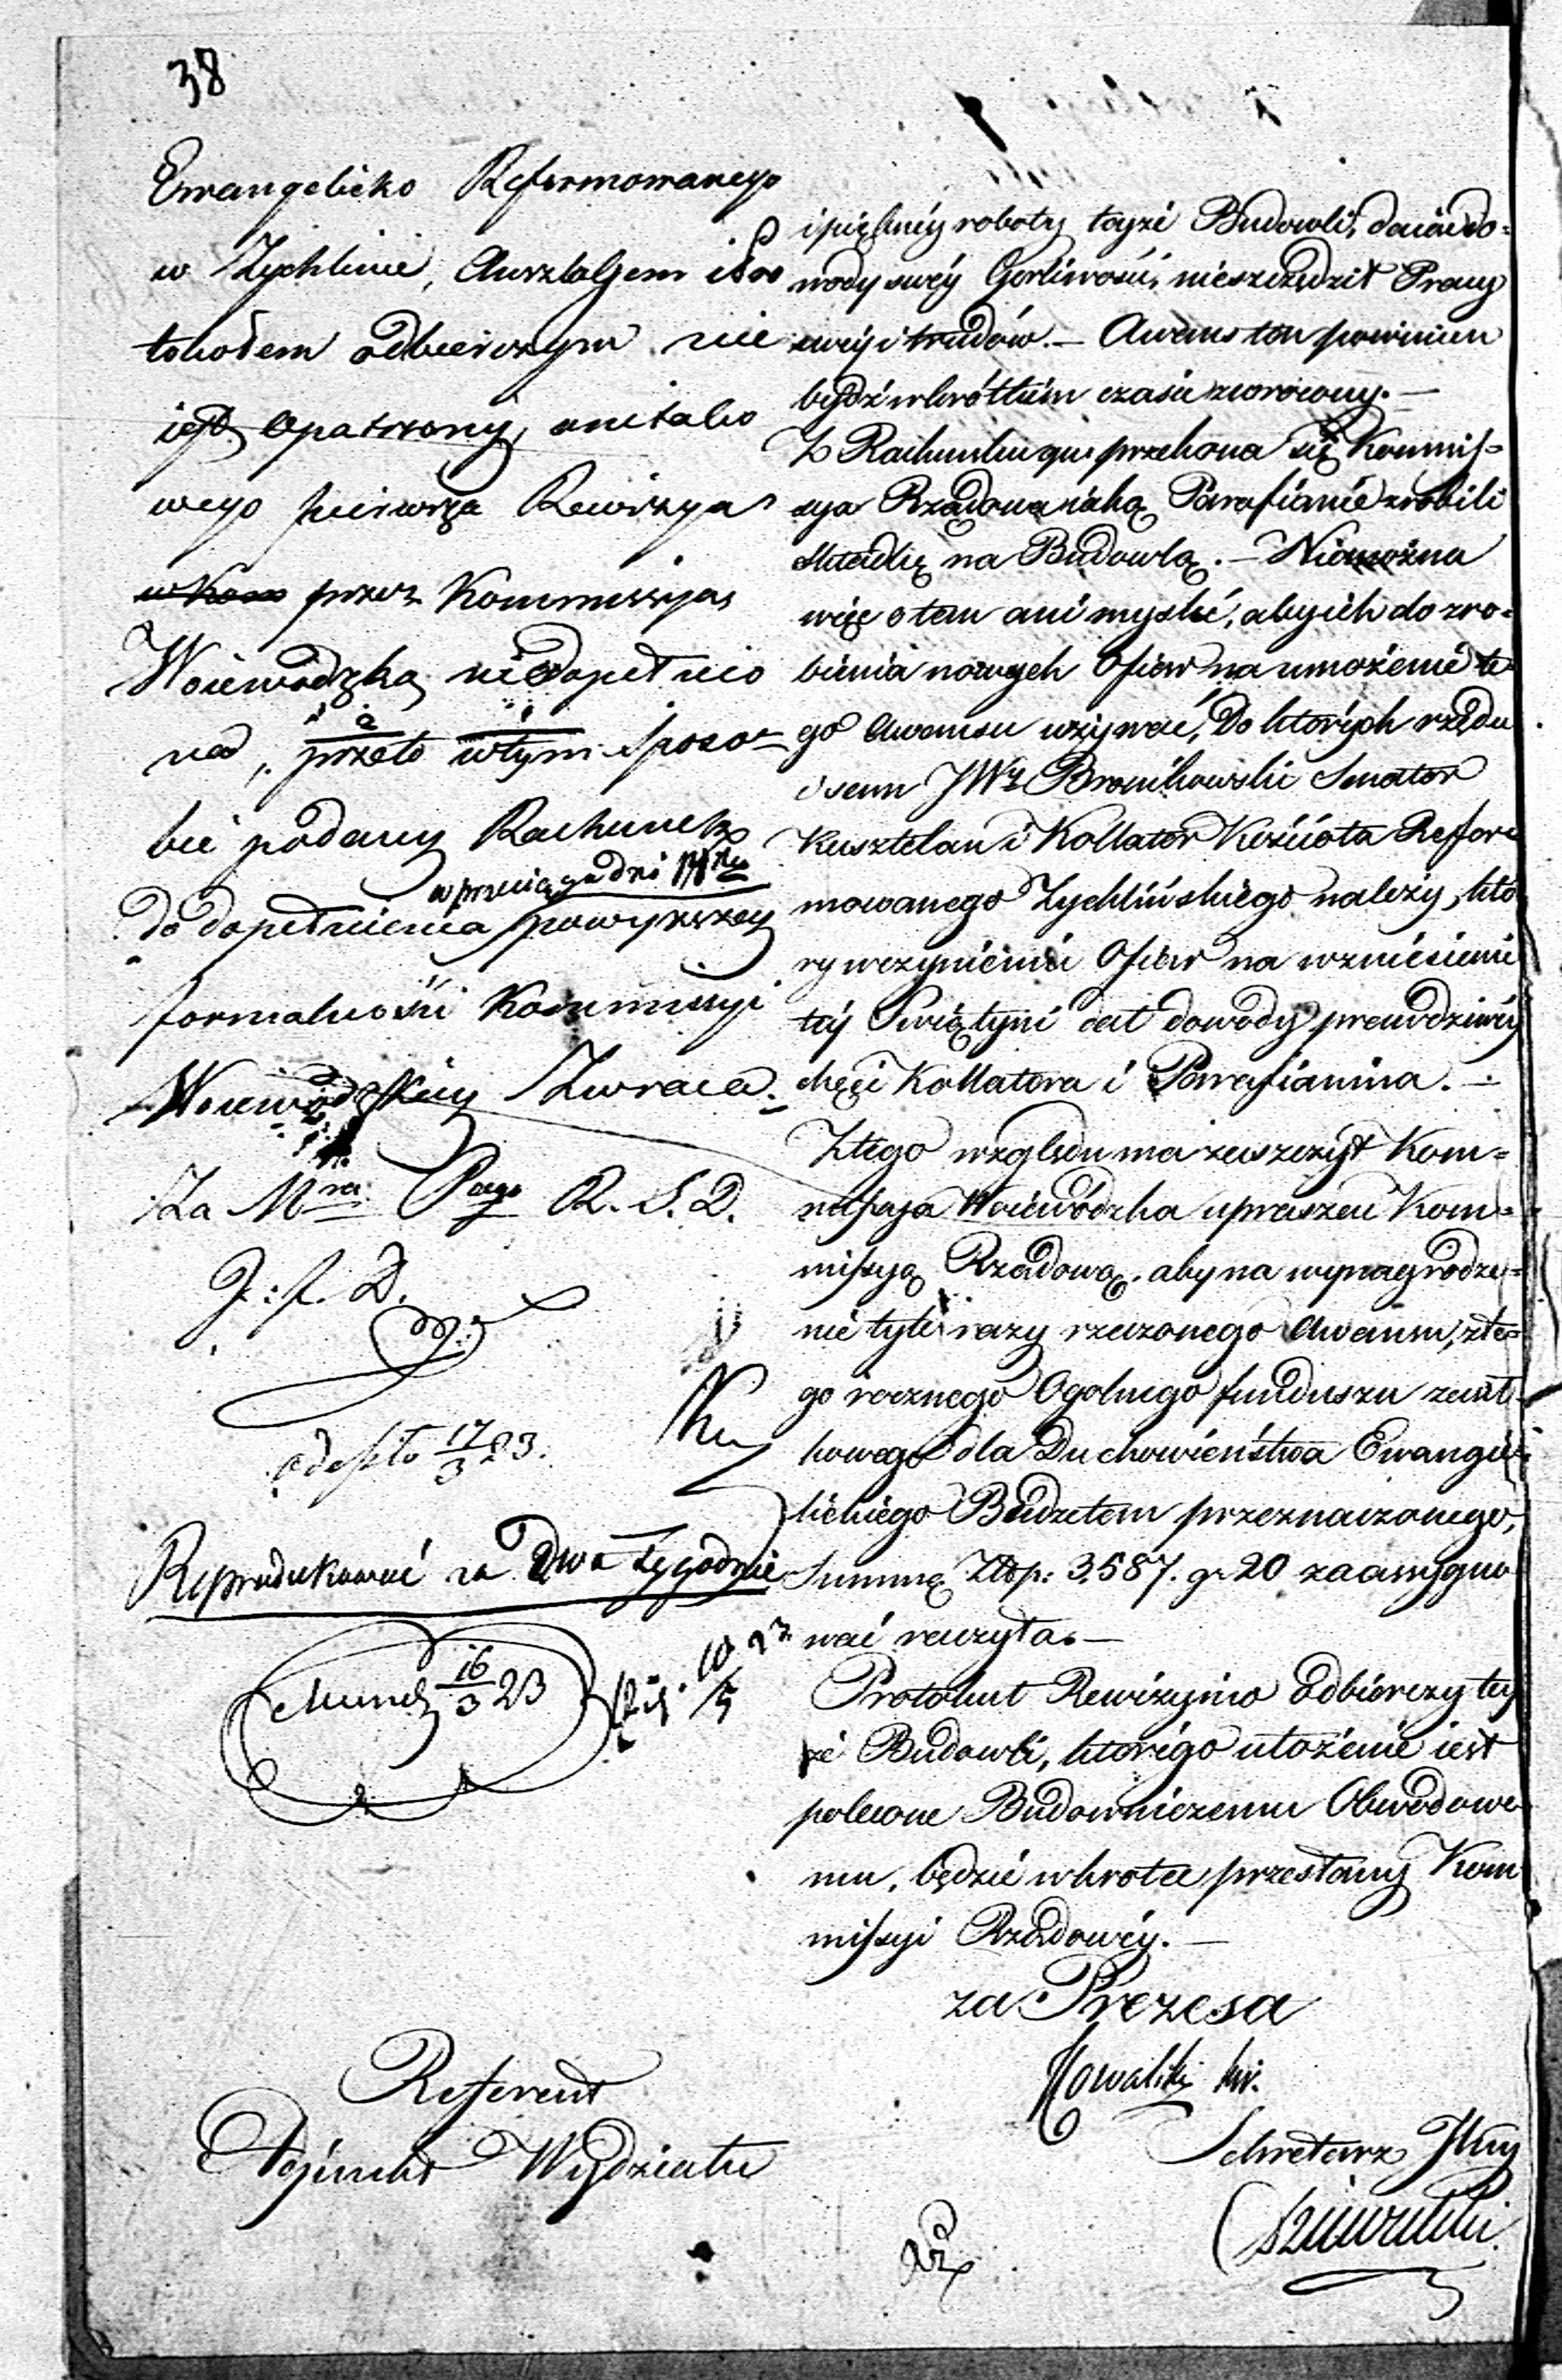 38
Ewangelicko Reformowanego
w Zychlinie, Anszlagiem i Pro
tokołem odbiorczym nie
iest opatrzony, anitako
wego pierwsza Rewizya
w Kom przez Kommissyą
Woiewódzką niedopełnio
na, przeto w tym sposo=
bie podany Rachunek
w przeciągu dni 14stu
do dopełnienia powyższey
formalności Kommissyi
Woiewódzkiey Zwraca.
Za Mra Prez. R. S. D.
J. f. D.
odeszło 17/3 23.
Reprodukować za Dwa Tygodnie
Mund 16/3 23
10/5 23
Referent
Adjunkt Wydziału
i piękney roboty teyże Budowli, daiąc do=
wody swey Gorliwości, nieszczędził Pracy
swey i trudów. — Awans ten powinien
bydź w krótkim czasie zwrócony. —
Z Rachunku przekona się Kommis=
sya Rządowa iaką Parafianie zrobili
składkę na Budowlą. — Niemożna
więc o tem ani myśleć, aby ich do zro=
bienia nowych Ofiar na umożenie te
go Awansu wzywać, Do których rzędu
i sam JWy Bronikowski Senator
Kasztelan i Kollator Kościoła Refor
mowanego Zychlińskiego należy, któ
ry w czynieniu Ofiar na wzniesienie
tey Swiątyni dał dowody prawdziwey
chęci Kollatora i Parafianina. —
Z tego względu ma zaszczyt Kom=
missya Woiewódzka upraszać Kom=
missyą Rządową, aby na wynagrodze=
nie tyle razy rzeczonego Awansu, z te=
go rocznego Ogolnego funduszu zasił
kowego dla Duchowieństwa Ewange
lickiego Budżetem przeznaczonego,
Summę Złp: 3,587. gr 20 zaassygno
wać raczyła. —
Protokuł Rewizyino Odbiorczy tey
że Budowli, którego ułożenie iest
polecone Budowniczemu Obwodowe
mu, będzie wkrótce przesłany Kom
missyi Rządowey. —
za Prezesa
Kowalski
Sekretarz Jlny